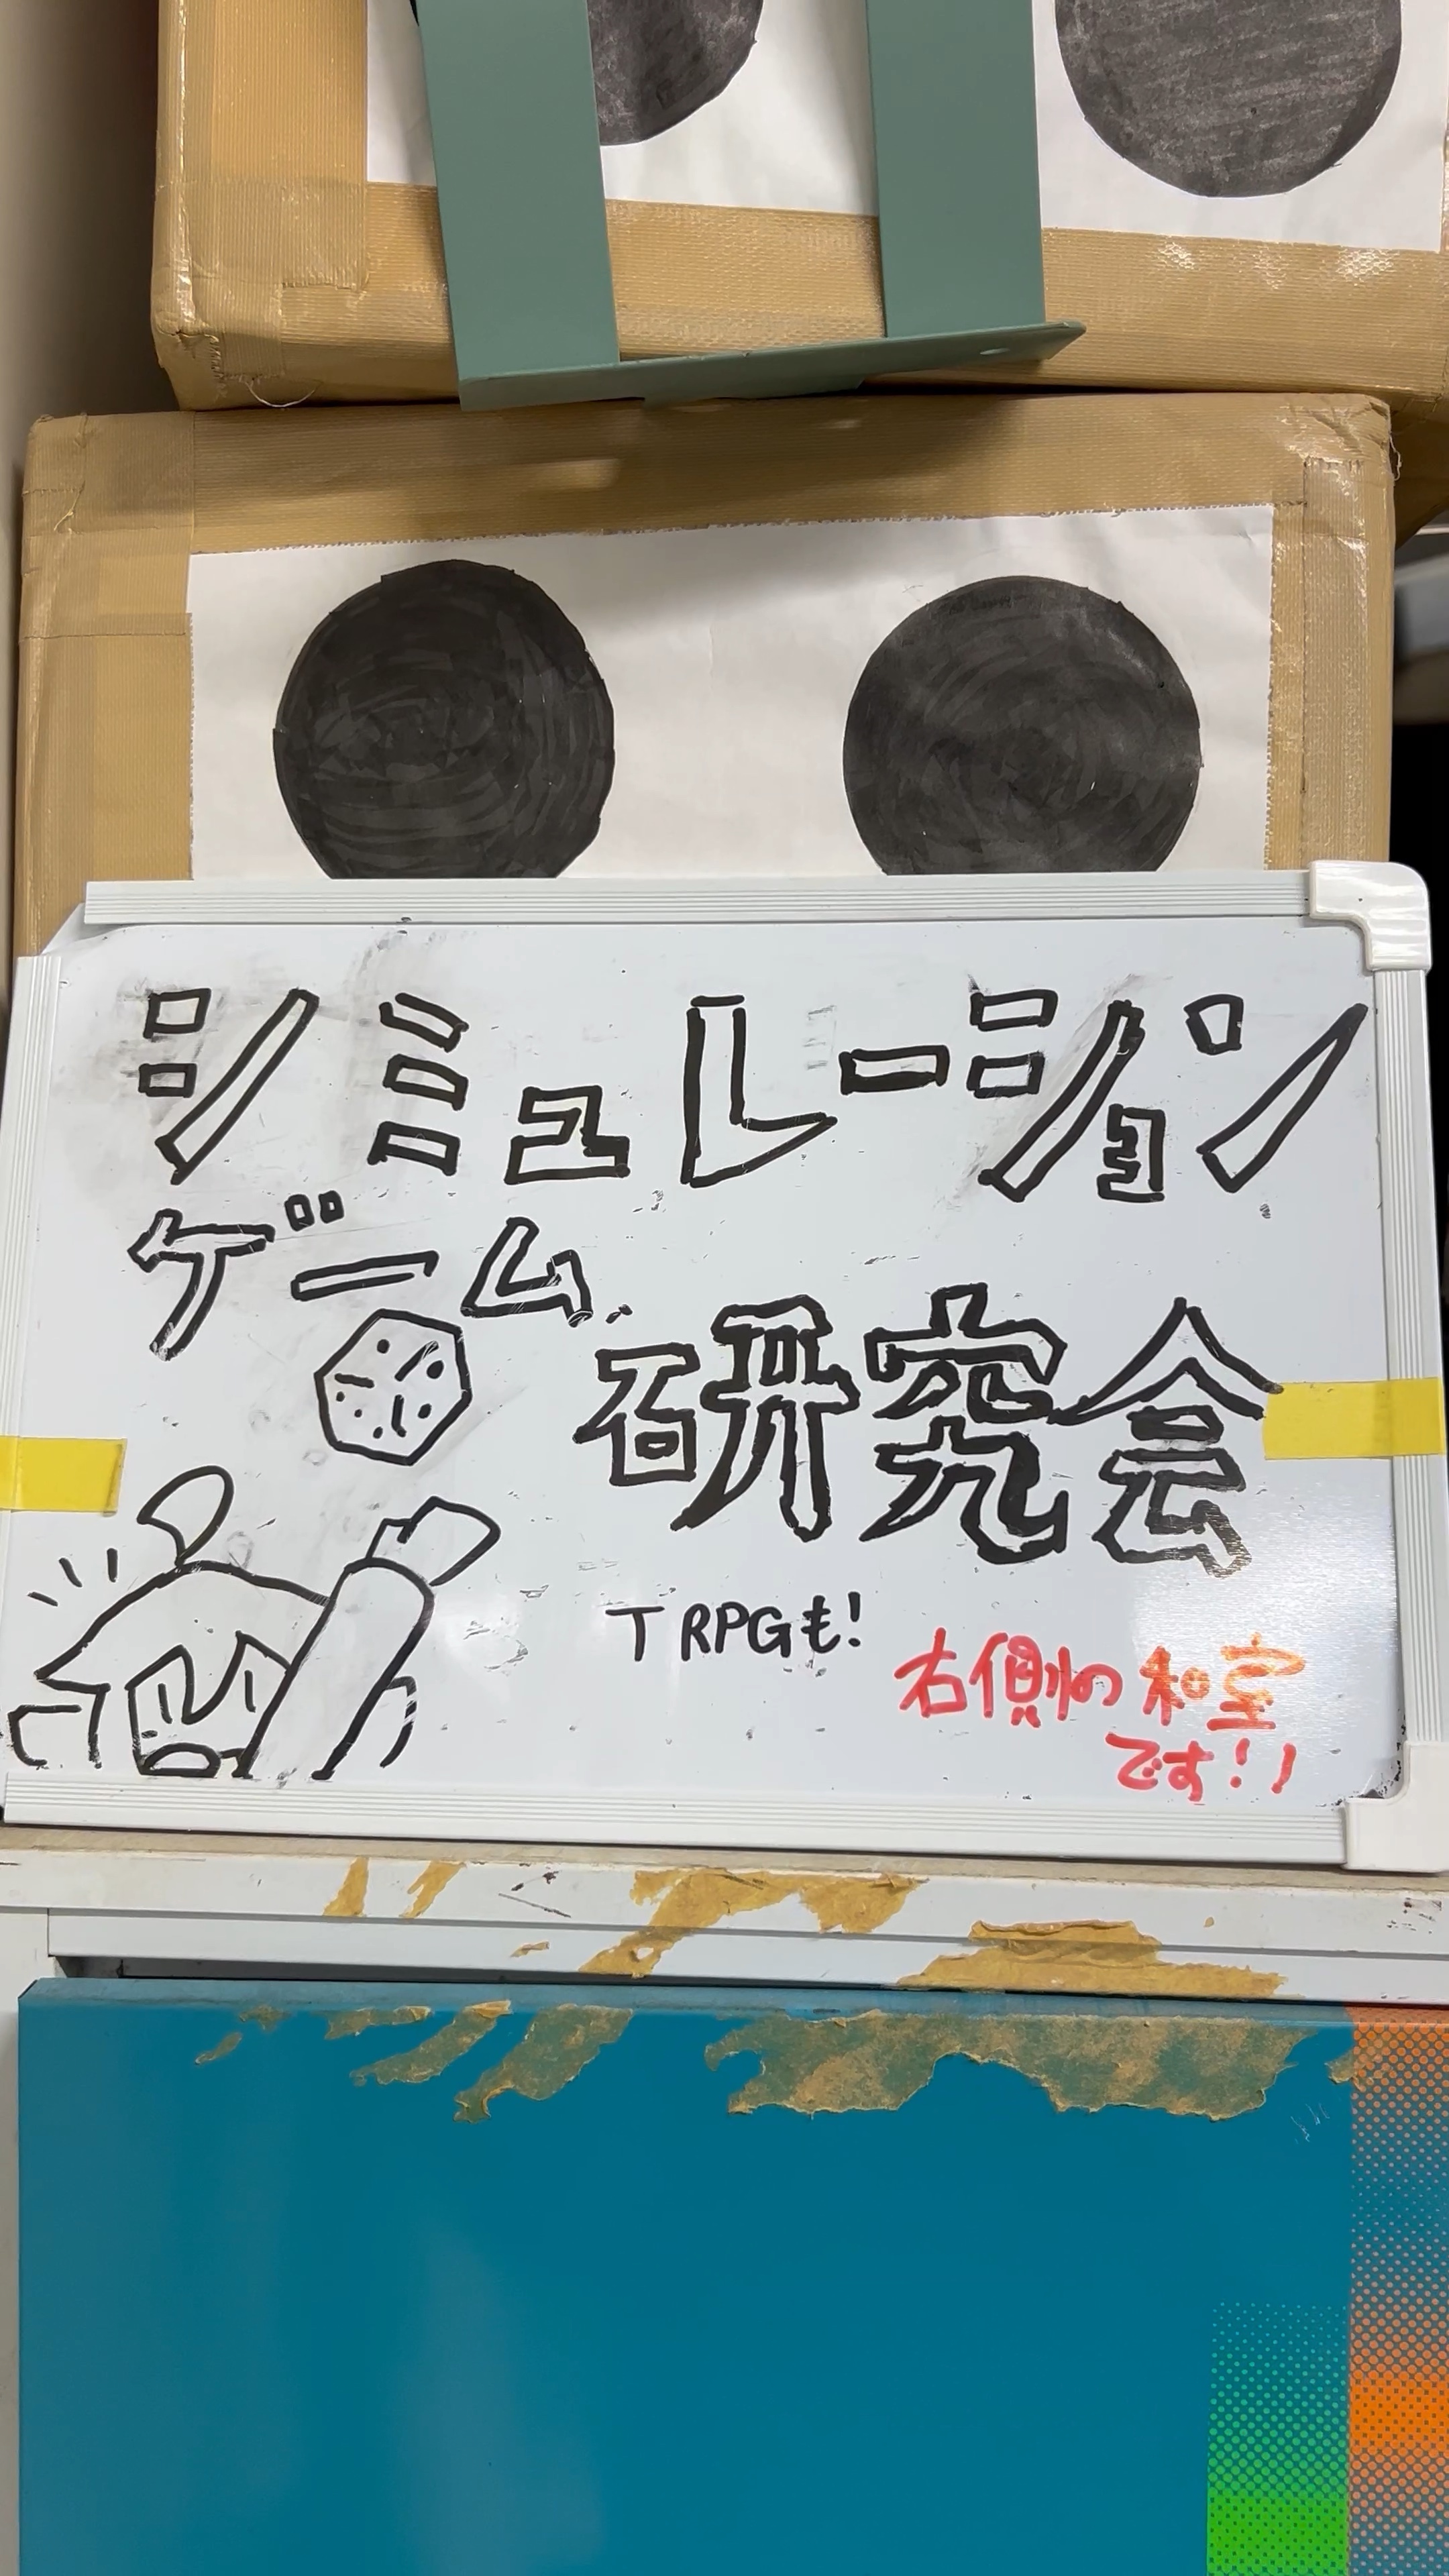 シミュレーション
ゲーム
研究会
TRPGも!
右側の和室
です!!